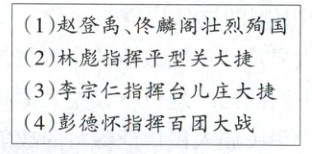 (1)赵登禹、佟麟阁壮烈殉国
(2)林彪指挥平型关大捷
(3)李宗仁指挥台儿庄大捷
(4)彭德怀指挥百团大战